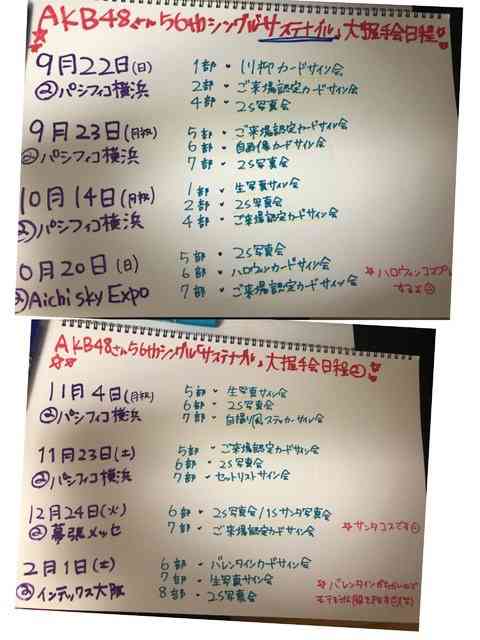 AKB48さん56thシングル「サステナブル」大握手会日程
9月22日(日) 1部・川柳カードサイン会
@パシフィコ横浜 2部・ご来場認定カードサイン会
4部・2S写真会
9月23日(月・祝) 5部・ご来場認定カードサイン会
@パシフィコ横浜 6部・自画像カードサイン会
7部・2S写真会
10月14日(月・祝) 1部・生写真サイン会
@パシフィコ横浜 2部・2S写真会
4部・ご来場認定カードサイン会
0月20日(日) 5部・2S写真会
@Aichi sky Expo 6部・ハロウィンカードサイン会
7部・ご来場認定カードサイン会
☆ハロウィンコスプレ
するよ
AKB48さん56thシングル「サステナブル」大握手会日程②
11月4日(月・祝) 5部・生写真サイン会
@パシフィコ横浜 6部・2S写真会
7部・自撮り風ステッカーサイン会
11月23日(土) 5部・ご来場認定カードサイン会
@パシフィコ横浜 6部・2S写真会
7部・セットリストサイン会
12月24日(火) 6部・2S写真会/1Sサンタ写真会
@幕張メッセ 7部・ご来場認定カードサイン会
☆サンタコスです
2月1日(土) 6部・バレンタインカードサイン会
@インデックス大阪 7部・生写真サイン会
8部・2S写真会
☆バレンタイン